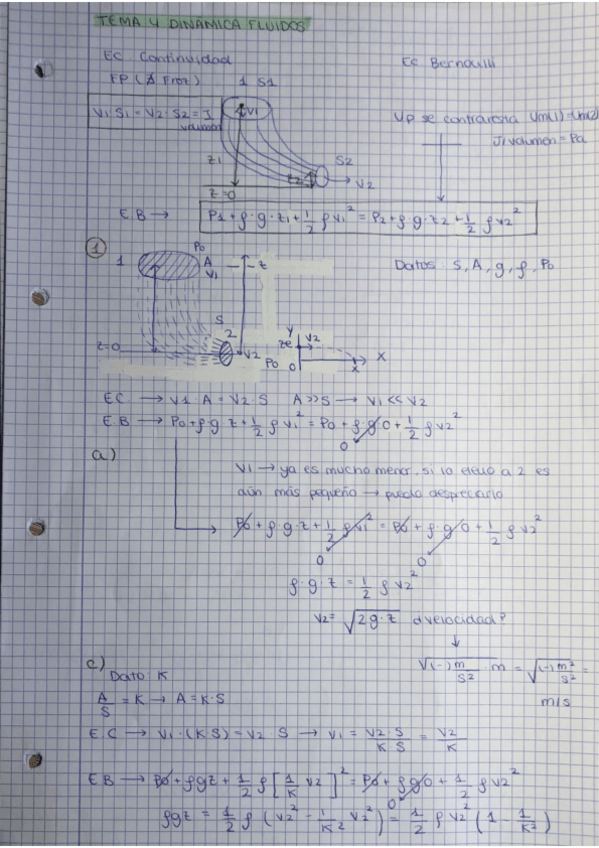 TEMA 4 DINAMICA FLUIDOS
EC. Continuidad
Ec Bernoulli
FP (∄ Froz)
1 S1
V1·S1 = V2·S2 = I volumen
V1
Z1
S2
Z2
V2
z=0
Up se contrarresta Um(1)=Um(2)
J/volumen = Pa
EB → P1+ρ·g·z1+1/2 ρv1² = P2+ρ·g·z2+1/2 ρv2²
1
P0
1
A
V1
z
Datos: S, A, g, ρ, P0
S
2
z=0
V2
P0
Y
V2
ze
0
X
x
EC → V1·A = V2·S A>>S → V1<<V2
E.B → P0+ρ·g·z+1/2 ρv1² = P0+ρ·g·0+1/2 ρv2²
0
a)
V1 → ya es mucho menor, si lo elevo a 2 es
aún más pequeño → puedo despreciarlo
P0+ρ·g·z+1/2 ρv1² = P0+ρ·g·0+1/2 ρv2²
0
0
ρ·g·z = 1/2 ρv2²
V2 = √2g·z ¿velocidad?
√(-) m/s² · m = √(-) m²/s² =
m/s
c)
Dato: K
A/S = K → A=K·S
E.C → V1·(K·S) = V2·S → V1 = V2·S/K·S = V2/K
EB → P0+ρgz+1/2 ρ[1/K V2]² = P0+ρg0+1/2 ρv2²
0
ρgz = 1/2 ρ(V2² - 1/K² V2²) = 1/2 ρv2²(1 - 1/K²)